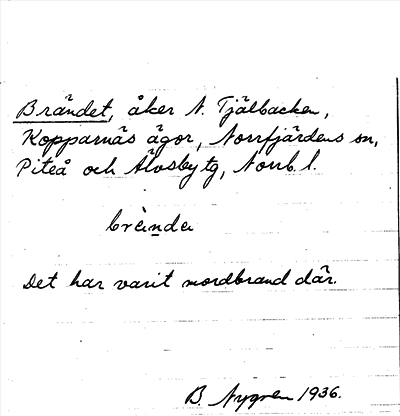 Brändet, åker N. Tjälbacken,
Kopparnäs ägor, Norrfjärdens sn,
Piteå och Älvsby tg, Norrb. l.
brända
Det har varit mordbrand där.
B. Nygren 1936.